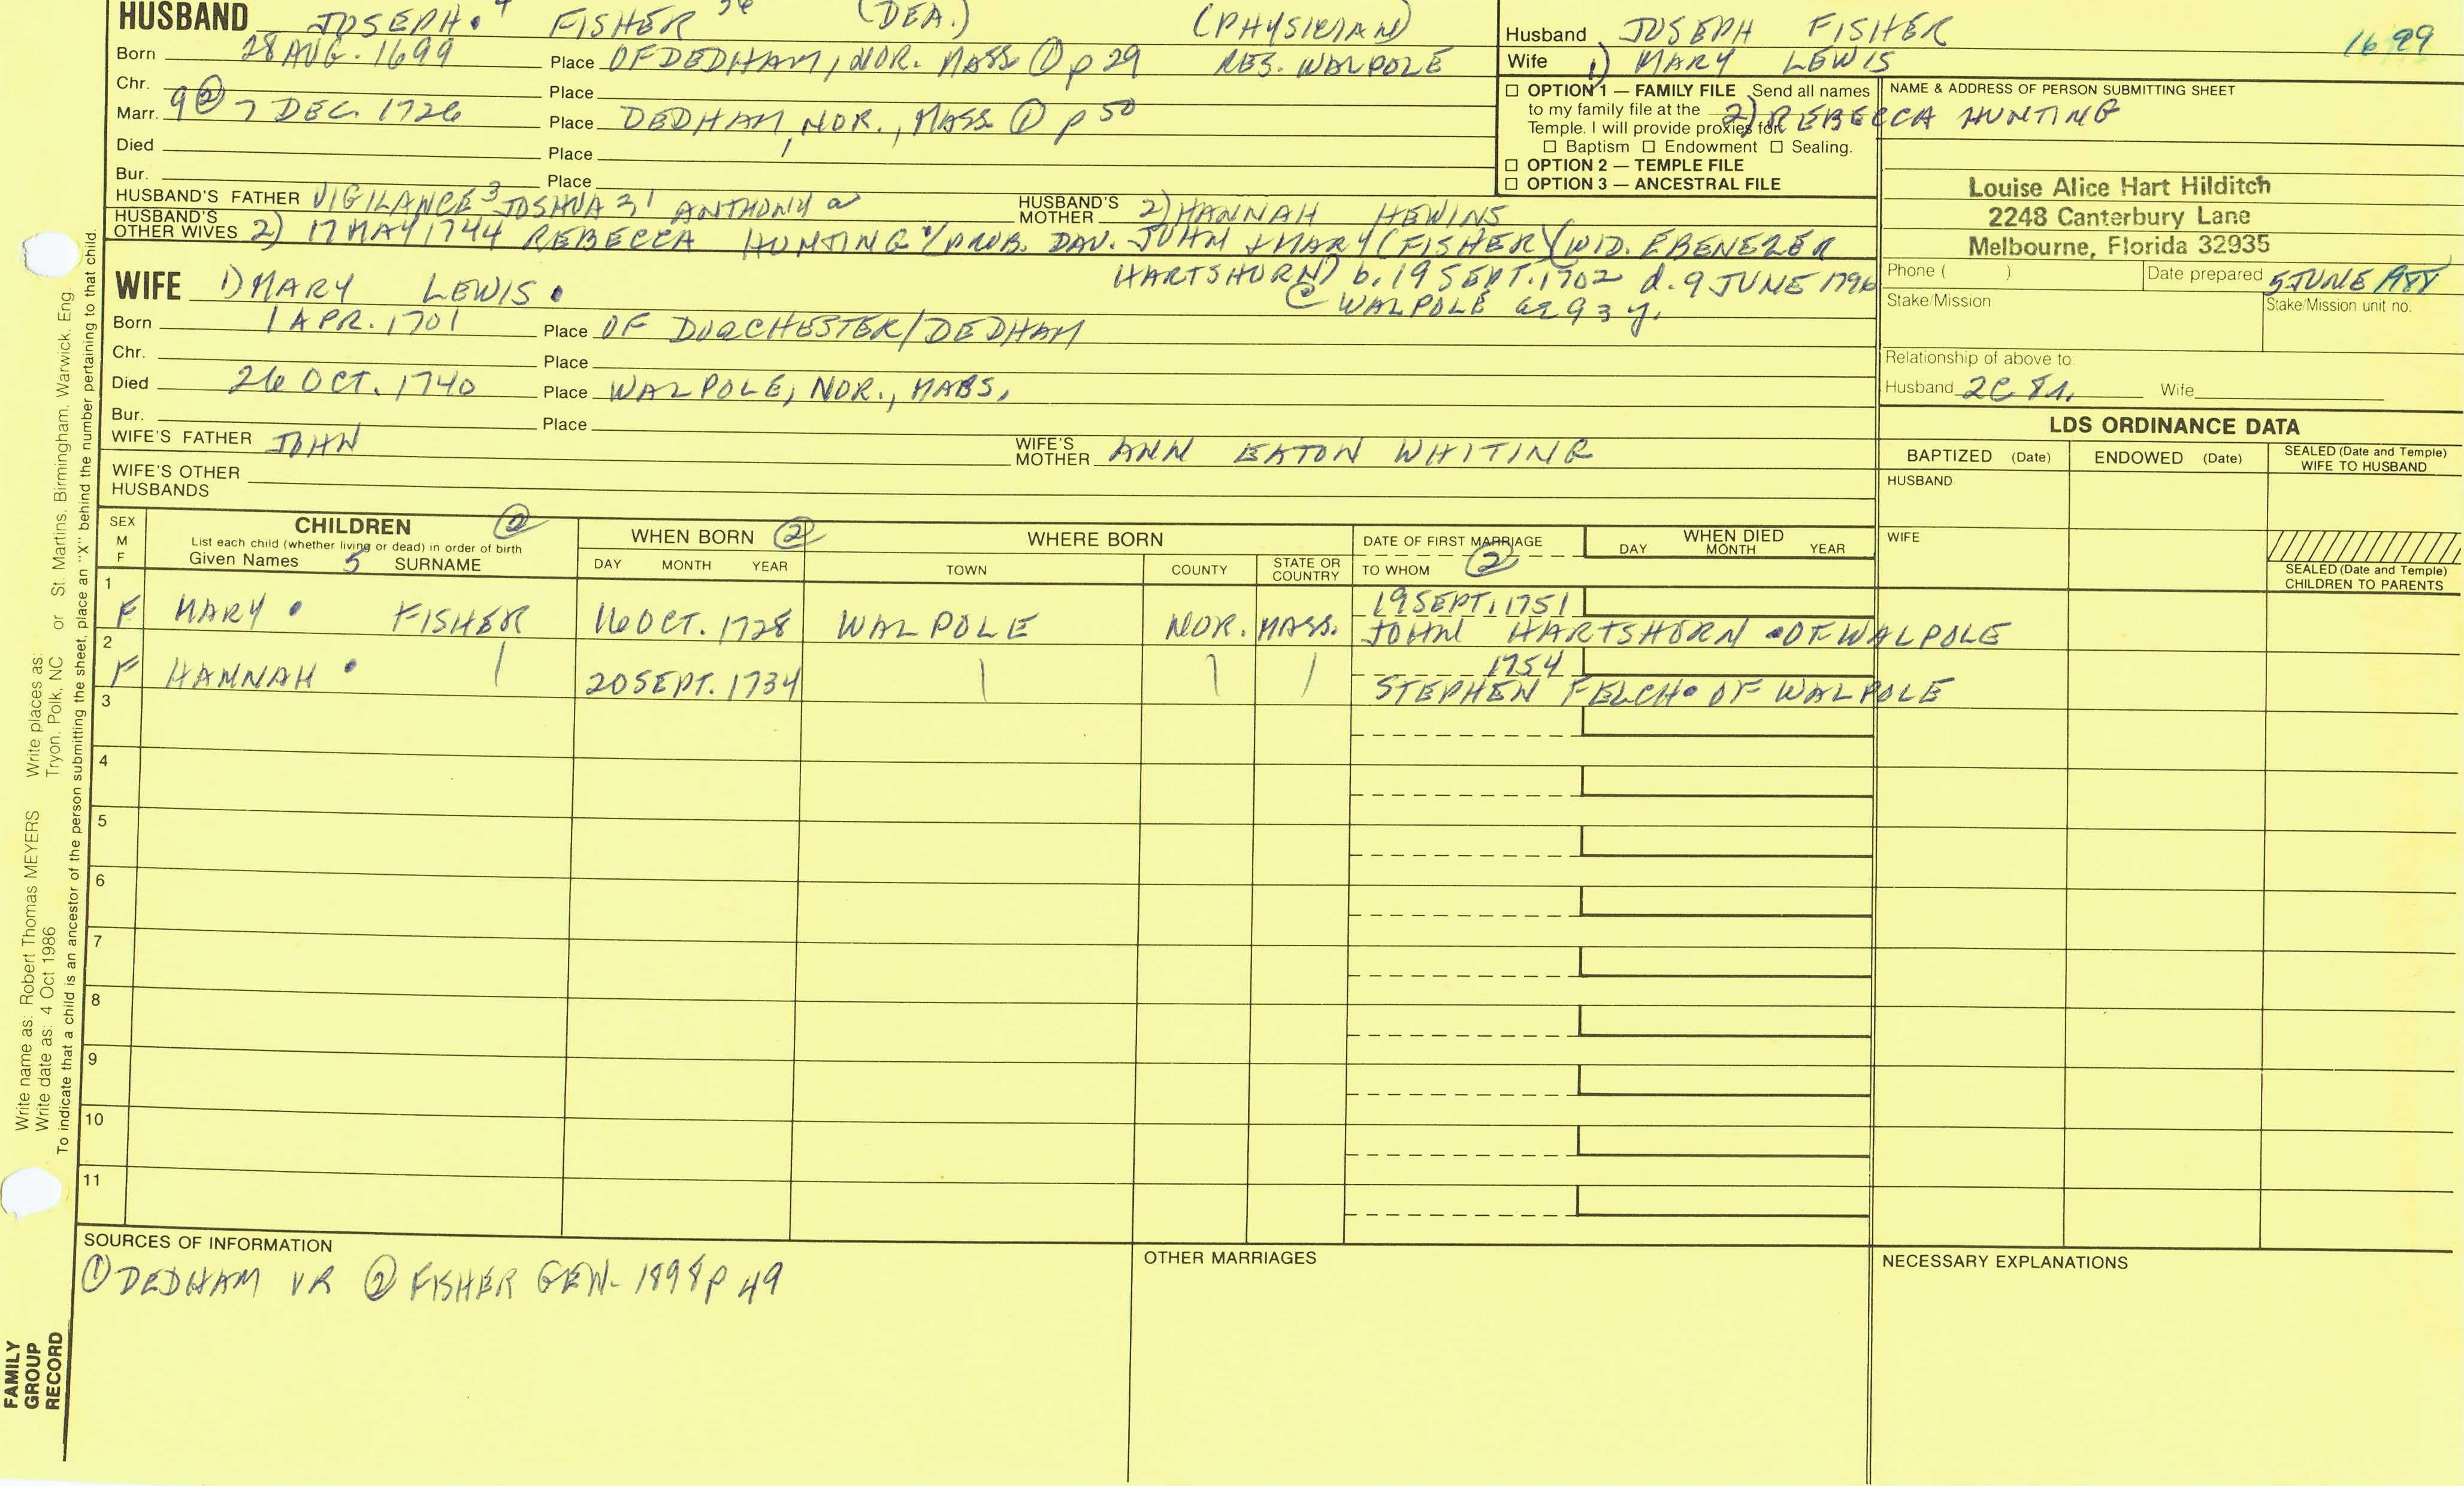 HUSBAND JOSEPH. 4 FISHER (DEA.) (PHYSICIAN)
Born 28 AUG. 1699 Place OF DEDHAM, NOR. MASS ① p 29 RES. WALPOLE
Chr. Place
Marr. 9 ② 7 DEC. 1726 Place DEDHAM, NOR., MASS ① p 50
Died Place
Bur. Place
HUSBAND'S FATHER VIGILANCE 3 JOSHUA ANTHONY HUSBAND'S MOTHER 2) HANNAH HEWINS
HUSBAND'S OTHER WIVES 2) 17 MAY 1744 REBECCA HUNTING (PROB. DAU. JOHN & MARY (FISHER) (WID. EBENEZER
HARTSHORN) b. 19 SEPT. 1702 d. 9 JUNE 1796
@ WALPOLE ae 93 y.
WIFE 1) MARY LEWIS.
Born 1 APR. 1701 Place OF DORCHESTER/DEDHAM
Chr. Place
Died 26 OCT. 1740 Place WALPOLE, NOR., MASS,
Bur. Place
WIFE'S FATHER JOHN WIFE'S MOTHER ANN EATON WHITING
WIFE'S OTHER HUSBANDS
Husband JOSEPH FISHER
Wife 1) MARY LEWIS
1699
☐ OPTION 1 — FAMILY FILE Send all names
to my family file at the
Temple. I will provide proxies for
☐ Baptism ☐ Endowment ☐ Sealing.
☐ OPTION 2 — TEMPLE FILE
☐ OPTION 3 — ANCESTRAL FILE
NAME & ADDRESS OF PERSON SUBMITTING SHEET
2) REBECCA HUNTING
Louise Alice Hart Hilditch
2248 Canterbury Lane
Melbourne, Florida 32935
Phone ( ) Date prepared 5 JUNE
Stake/Mission Stake/Mission unit no.
Relationship of above to:
Husband 2C Wife
LDS ORDINANCE DATA
BAPTIZED (Date) ENDOWED (Date) SEALED (Date and Temple) WIFE TO HUSBAND
HUSBAND
WIFE
SEALED (Date and Temple) CHILDREN TO PARENTS
SEX
M
F
CHILDREN ②
List each child (whether living or dead) in order of birth
Given Names 5 SURNAME
WHEN BORN ②
DAY MONTH YEAR
WHERE BORN
TOWN COUNTY STATE OR COUNTRY
DATE OF FIRST MARRIAGE
TO WHOM ②
WHEN DIED
DAY MONTH YEAR
1 F MARY • FISHER 16 OCT. 1728 WALPOLE NOR. MASS. 19 SEPT. 1751
JOHN HARTSHORN • OF WALPOLE
2 F HANNAH • 20 SEPT. 1734 1754
STEPHEN FELCH • OF WALPOLE
3
4
5
6
7
8
9
10
11
SOURCES OF INFORMATION
① DEDHAM VR ② FISHER GEN- 1898 p 49
OTHER MARRIAGES
NECESSARY EXPLANATIONS
Write name as: Robert Thomas MEYERS Write places as:
Write date as: 4 Oct 1986 Tryon, Polk, NC or St. Martins, Birmingham, Warwick, Eng.
To indicate that a child is an ancestor of the person submitting the sheet, place an "X" behind the number pertaining to that child.
FAMILY
GROUP
RECORD